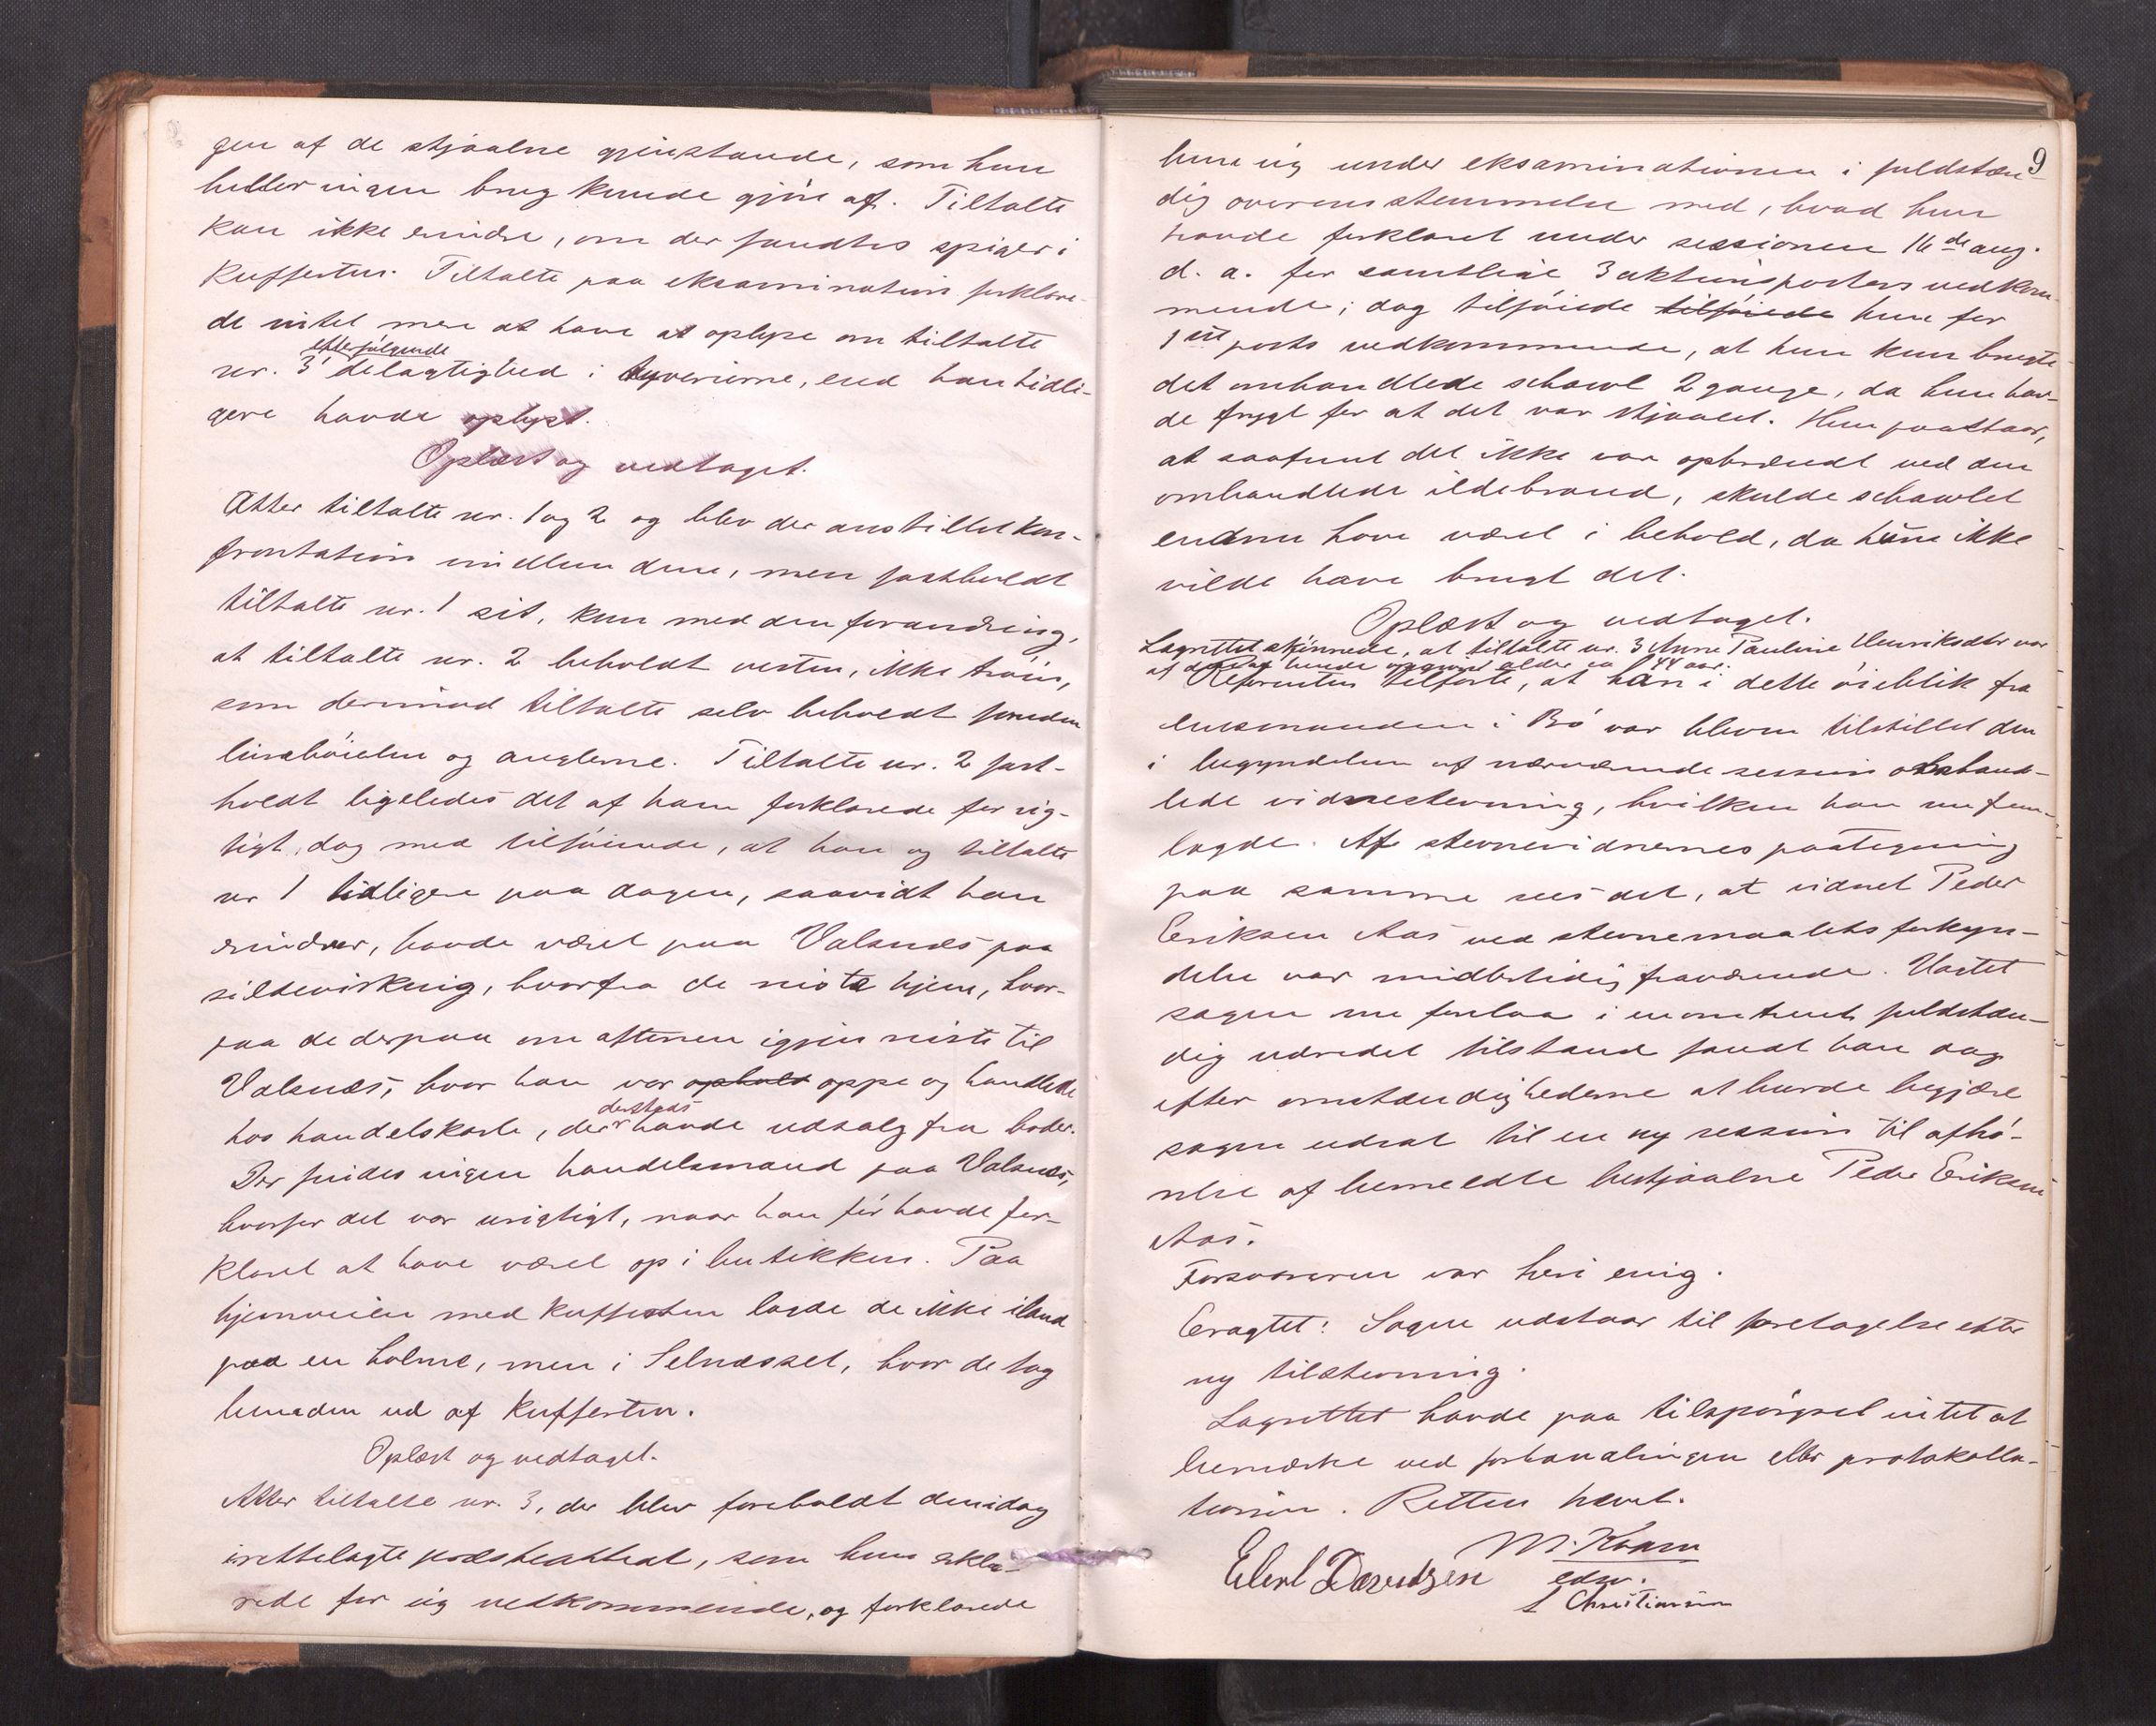 gen af de stjaalne gjenstande, som hun
heller ingen brug kunde gjøre af. Tiltalte
kan ikke erindre, om der fandtes spiger i
kufferten. Tiltalte paa eksamination forklare-
de intet mere at have at oplyse om tiltalte
efterfølgende
nr. 3' delagtighed i tyverierne, end han tidli-
gere havde oplyst.
Oplæst og vedtaget.
Atter tiltalte nr. 1 og 2 og blev der anstillet kon-
frontation imellem dem, men fastholdt
tiltalte nr. 1 sit, kun med den forandring,
at tiltalte nr. 2 beholdt vesten, ikke trøien,
som derimod tiltalte selv beholdt foruden
linebøielen og anglerne. Tiltalte nr. 2 fast-
holdt ligeledes det af ham forklarede for rig-
tigt, dog med tilføiende, at han og tiltalte
nr 1 tidligere paa dagen, saavidt han
erindrer, havde været paa Valsnæs paa
sildevirkning, hvorfra de reiste hjem, hvor-
paa de derpaa om aftenen igjen reiste til
Valsnæs, hvor han var ophold oppe og handlede
dersteds
hos handelskarle, der havde udsalg fra boder.
Der findes ingen handelsmand paa Valsnæs,
hvorfor det var urigtigt, naar han før havde for-
klaret at have været op i butikken. Paa
hjemveien med kufferten lagde de ikke iland
paa en holme, men i Selnæsset, hvor de tog
ud af kufferten.
Oplæst og vedtaget.
Atter tiltalte nr. 3, der blev foreholdt den idag
irettelagte præsteattest, som hun erklæ-
rede for sig vedkommende, og forklarede
9
hun sig under eksaminationen i fuldstæn-
dig overensstemmelse med, hvad hun
havde forklaret under sessionen 16de aug.
d. a. for samtlige 3 aktionsposters vedkom-
mende; dog tilføiede tilføiede hun for
1ste posts vedkommende, at hun kun brugte
det omhandlede schawl 2 gange, da hun hav-
de frygt for at det var stjaalet. Hun paastaar,
at saafremt det ikke var opbrændt ved den
omhandlede ildebrand, skulde schawlet
endnu have været i behold, da hun ikke
vilde have brugt det.
Oplæst og vedtaget.
Lagrettet skjønnede, at tiltalte nr. 3 Anne Pauline Henriksdtr var
af den af hende opgivne alder ca 44 aar.
Referenten tilførte, at han i dette øieblik fra
lensmanden i Bø var bleven tilstillet den
i begyndelsen af nærværende session ombehand-
lede vidnestevning, hvilken han nu frem-
lagde. Af stevnevidnernes paategning
paa samme sees det, at vidnet Peder
Eriksen Aas ved stevnemaalets forkyn-
delse var midlertidig fraværende. Uagtet
sagen nu forelaa i omtrent fuldstæn-
dig udredet tilstand fandt han dog
efter omstændighederne at burde begjære
sagen udsat til en ny session til afhø-
relse af bemeldte bestjaalne Peder Eriksen
Aas.
Forsvareren var heri enig.
Eragtet: Sagen udstaar til foretagelse efter
ny tilstevning.
Lagrettet havde paa tilspørgsel intet at
bemærke ved forhandlingen eller protokolla-
tionen. Retten hævet.
Edw.
Elert Davidsen
Christiansen